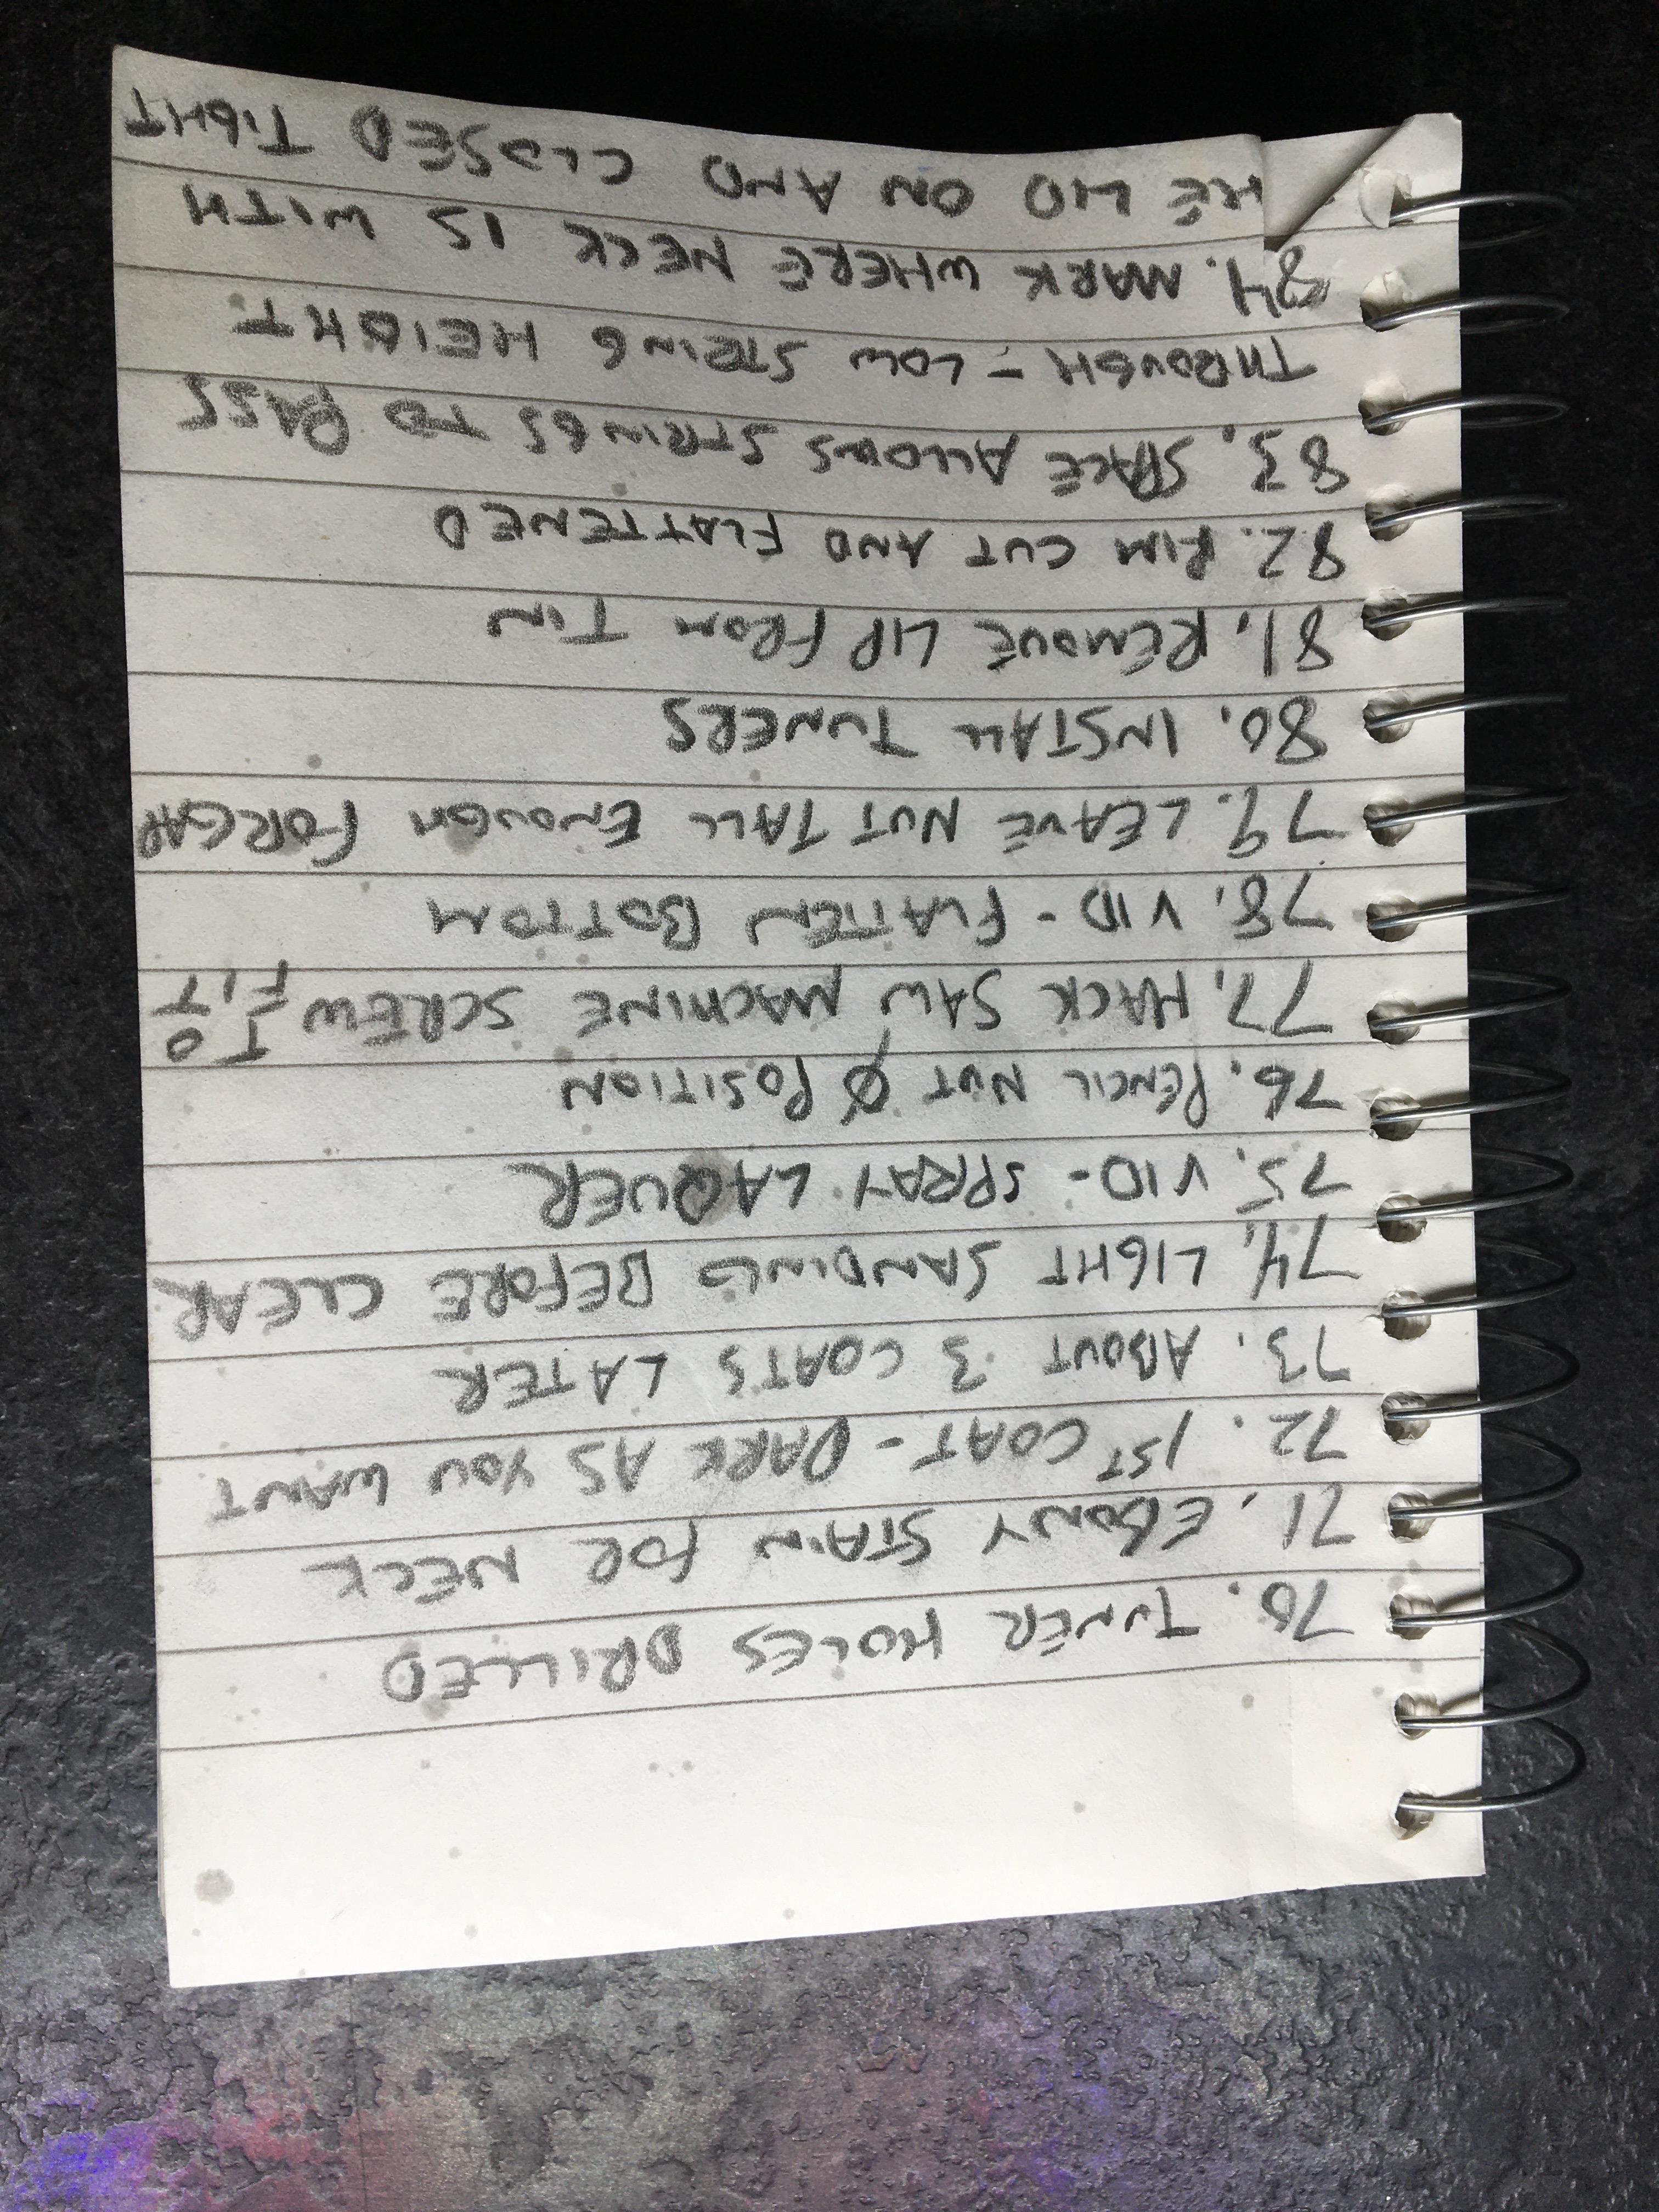 70. TUNER HOLES DRILLED
71. EBONY STAIN FOR NECK
72. 1ST COAT - DARK AS YOU WANT
73. ABOUT 3 COATS LATER
74. LIGHT SANDING BEFORE CLEAR
75. VID - SPRAY LAQUER
76. PENCIL NUT POSITION
77. HACK SAW MACHINE SCREW TO FIT
78. VID - FLATTEN BOTTOM
79. LEAVE NUT TALL ENOUGH FOR GAP
80. INSTALL TUNERS
81. REMOVE LID FROM TIN
82. RIM CUT AND FLATTENED
83. SPACE ALLOWS STRINGS TO PASS
THROUGH - LOW STRING HEIGHT.
84. MARK WHERE NECK IS WITH
HE LID ON AND CLOSED TIGHT